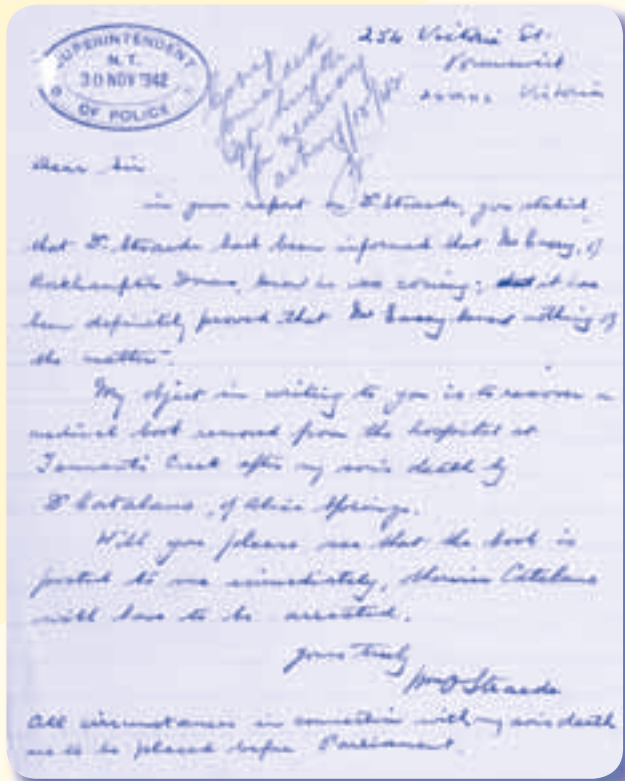 SUPERINTENDENT
N.T.
30 NOV 1942
OF POLICE
254 Victoria St.
Brunswick
Victoria
Dear Sir
in your report on Dr Straede, you stated
that Dr Straede had been informed that Mr of
Rockhampton Downs, knew he was coming; it has
been definitely proved that Mr knew nothing of
the matter.
My object in writing to you is to recover a
medical book removed from the hospital at
Tennant's Creek after my son's death by
Dr Catalano, of Alice Springs.
Will you please see that the book is
posted to me immediately, Catalano
will have to be arrested.
yours truly
Straede
All circumstances in connection with my sons death
to be placed before Parliament.